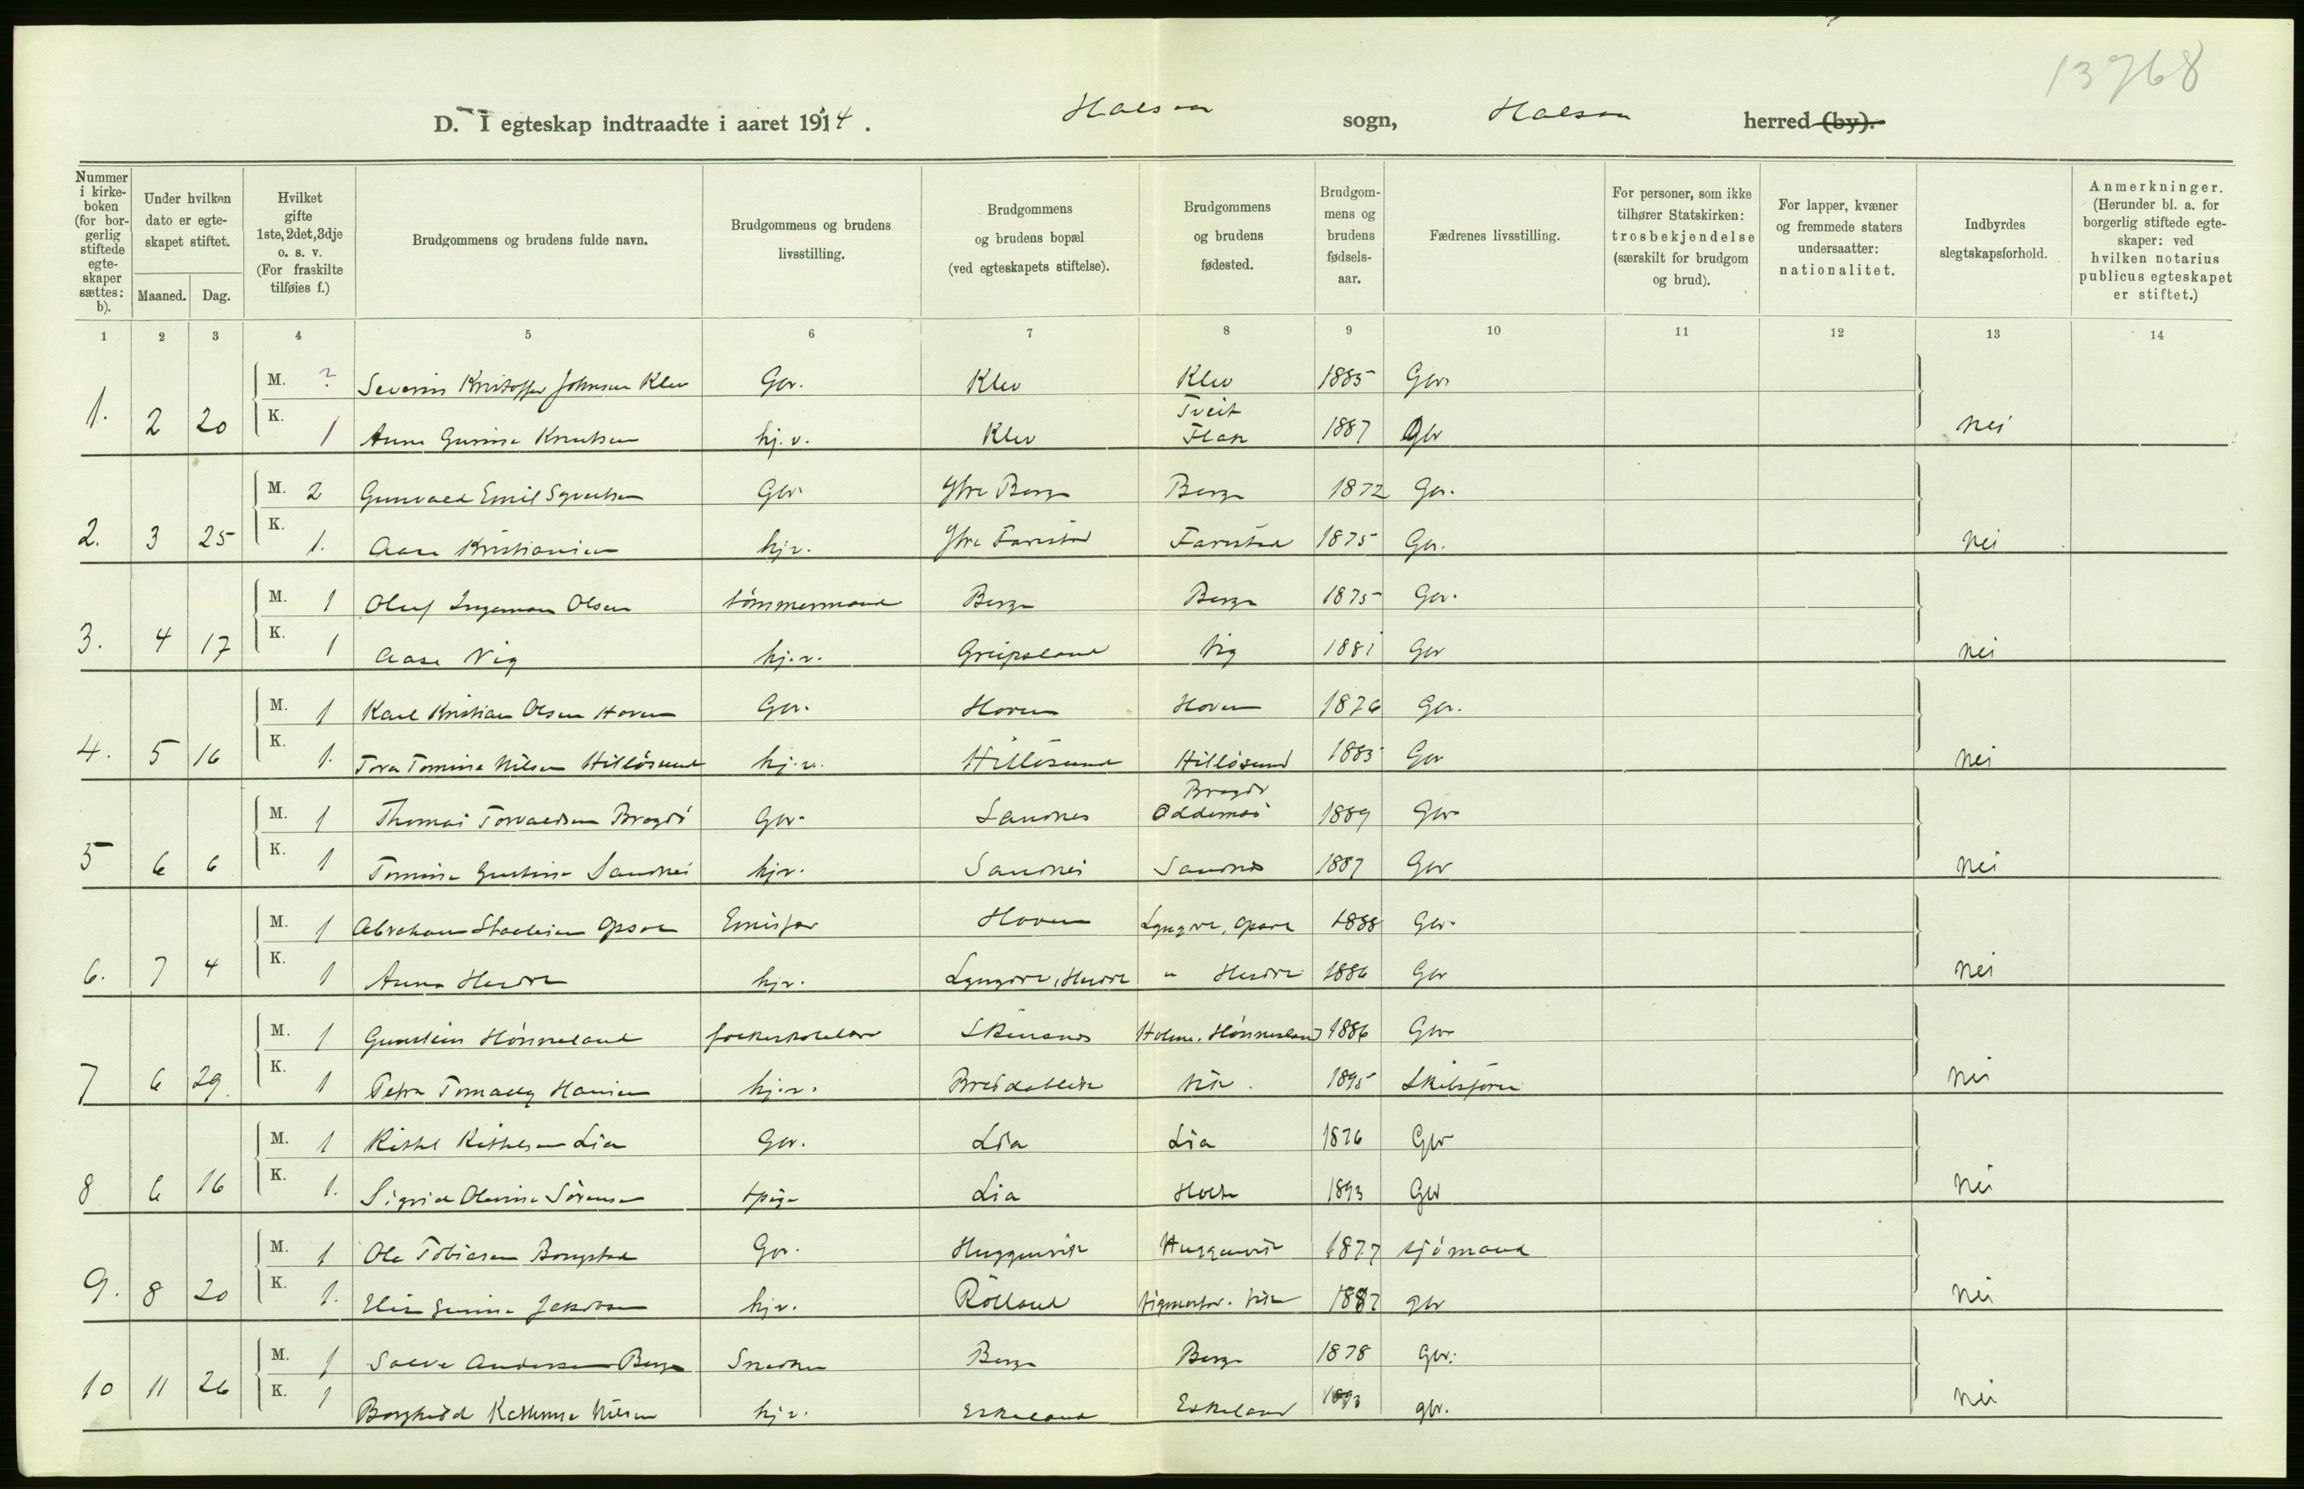 13768
D. I egteskap indtraadte i aaret 1914. Halsaa sogn, Halsaa herred (by).
Nummer i kirkeboken (for borgerlig stiftede egteskaper sættes: b).
Under hvilken dato er egteskapet stiftet.
Maaned. Dag.
Hvilket gifte 1ste, 2det, 3dje o. s. v. (For fraskilte tilføies f.)
Brudgommens og brudens fulde navn.
Brudgommens og brudens livsstilling.
Brudgommens og brudens bopæl (ved egteskapets stiftelse).
Brudgommens og brudens fødested.
Brudgommens og brudens fødselsaar.
Fædrenes livsstilling.
For personer, som ikke tilhører Statskirken: trosbekjendelse (særskilt for brudgom og brud).
For lapper, kvæner og fremmede staters undersaatter: nationalitet.
Indbyrdes slegtskapsforhold.
Anmerkninger. (Herunder bl. a. for borgerlig stiftede egteskaper: ved hvilken notarius publicus egteskapet er stiftet.)
1 2 3 4 5 6 7 8 9 10 11 12 13 14
M. ? Severin Kristoffer Johnsen Klev Gbr. Klev Klev 1885 Gbr.
Tveit
1. 2 20 K. 1 Anna Gurine Knutsen hj.v. Klev Flak 1887 Gbr nei
M. 2 Gunvald Emil Syvertsen Gbr. Ytre Berge Berge 1872 Gbr.
2. 3 25 K. 1. Aase Kristiansen hj.v. Ytre Farestad Farestad 1875 Gbr. nei
M. 1 Oluf Ingeman Olsen tömmermand Berge Berge 1875 Gbr.
3. 4 17 K. 1 Aase Vig hj.v. Greipsland Vig 1881 Gbr nei
M. 1 Karl Kristian Olsen Hoven Gbr. Hoven Hoven 1876 Gbr.
4. 5 16 K. 1. Tora Tomine Nilsen Hillösund hj.v. Hillösund Hillösund 1885 Gbr nei
Bragdö
M. 1 Thomas Torvaldsen Bragdö Gbr. Sandnes Oddernes 1889 Gbr
5 6 6 K. 1 Tomine Gustine Sandnes hj.v. Sandnes Sandnes 1887 Gbr nei
M. 1 Abraham Opsal Emisjær Hoven Lyngdal, Opsal 1888 Gbr.
6. 7 4 K. 1 Anna Herdal hj.v. Lyngdal, Herdal " Herdal 1886 Gbr nei
M. 1 Gunstein Hönneland folkeskolelærer Skinsnes Holme. Hönneland 1886 Gbr
7 6 29. K. 1 Petra Hansen hj.v. Breidablik Vik. 1895 Skibsfører nei
M. 1 Kittel Kittelsen Lia Gbr. Lia Lia 1876 Gbr
8 6 16 K. 1. Sigrid Olavine Sörensen tpige Lia Holte 1893 Gbr nei
M. 1 Ole Tobiasen Bergstad Gbr. Huggenvik Huggenvik 1877 sjömand
9. 8 20 K. 1. Elise Gurine Jakobsen hj.v. Rölland Vik 1887 gbr nei
M. 1 Salve Andersen Berge Snedker Berge Berge 1878 gbr.
10 11 26 K. 1 Borghild Kathrine Nilsen hj.v. Eskeland Eskeland 1893 gbr. nei